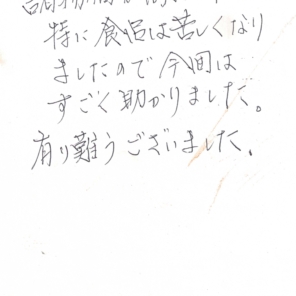 特に食侶は苦しくなり
ましたので今回は
すごく助かりました。
有り難うございました。